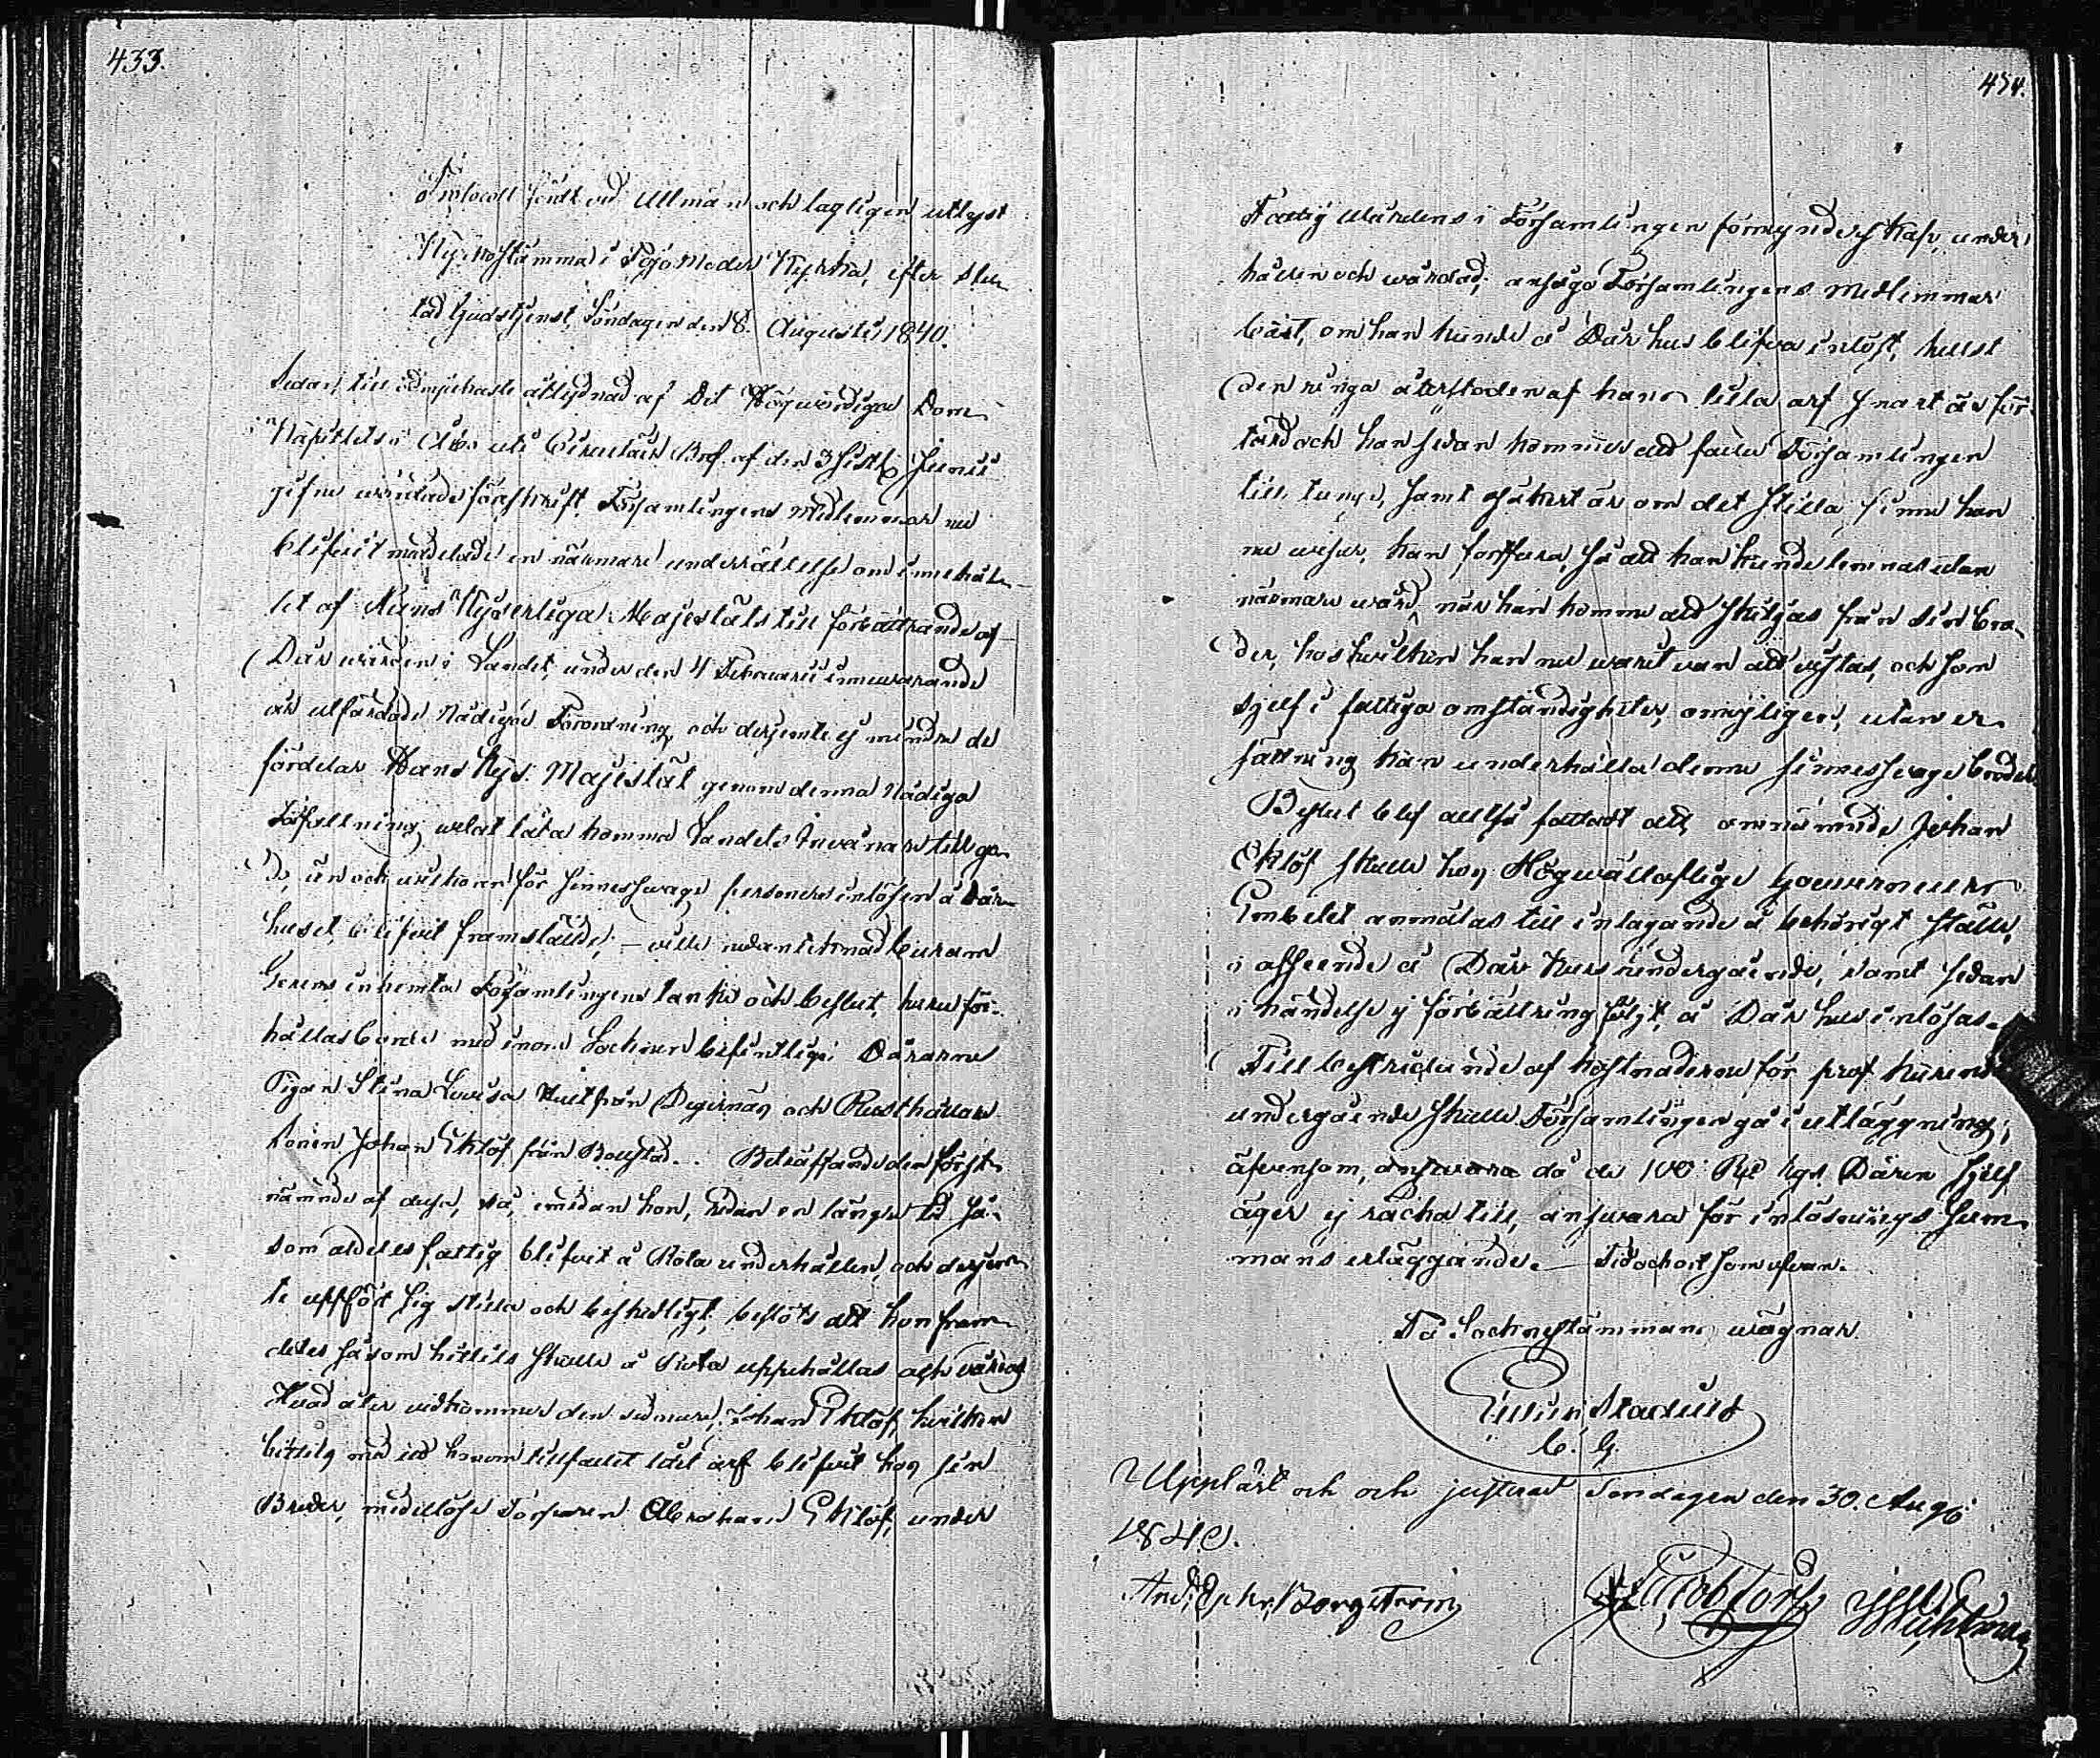 433.
Protocoll fördt vid Allmän och lagligen utlyst
Kyrkostämma i Pojo Moder Kyrka, efter slu-
tad Gudstjenst, Söndagen den 8. Augusti 1840.
Sedan, till ödmjukaste åtlydnad af Det Högwördiga Dom-
Kapitlets i Åbo uti Circulair Bref af den 3 sistl. Junii
gifne wördade föreskrift, Församlingens Medlemmar nu
blifvit meddelade en närmare underrättelse om innehål-
let af Hans Kejserliga Majestäts till förbättrande af
Dårvården i Landet, under den 4 Februarii innevarande
år utfärdade Nådiga Förordning, och derjemte ej mindre de
fördelar Hans Kejs. Majestät genom denna Nådiga
Författning velat låta komma Landets Invånare till go-
do, än och vilkoren för sinnessvage personers inlösen å Dår-
huset, blifvit framstälde; — ville undertecknad
inhemta Församlingens tanke och beslut, huru för-
hållas borde med inom Socknen befintlige Dårarne
Pigan Stina Lovisa från Degernäs och Rusthållare
sonen Johan Eklöf från Bollstad. Beträffande den först-
nämnde af desse, så, emedan hon, redan en längre tid så-
som aldeles fattig blifvit å Rota underhållen, och derjem-
te uppfört sig stilla och beskedligt, beslöts att hon fram-
deles såsom hittils skulle å Rota uppehållas och vårdas
Hvad åter vidkommer den sednare, Johan Eklöf, hvilken
hittils med ett honom tillfallet litet arf blifvit hos sin
Broder, medellöse Abraham Eklöf, under
434.
Fattig Wårdens i Församlingen förmynderskap under-
hållen och wårdad, ansågo Församlingens Medlemmar
bäst, om han kunde å Dårhus blifva inlöst, hellst
den ringa återstoden af hans lilla arf snart är för-
tärd och han sedan kommer att falla Församlingen
till tunga, samt osäkert är om det stilla sinne han
nu visar, kan fortfara, så att han kunde lemnas utan
närmare wård, när han komme att skiljas från sin Bro-
der, hos hvilken han nu warit van att vistas, och som
sjelf i fattiga omständigheter, omöjligen, utan er-
sättning kan underhålla denne sinnessvage broder.
Beslut blef alltså fattadt att omnämnde Johan
Eklöf skulle hos Högwällofliga Gouverneurs
Embetet anmälas till intagande å behörigt ställe,
i afseende å Dårkurs undergående, samt sedan
i händelse ej förbättring följt, å Dårhus inlösas.
Till bestridande af kostnaderne för prof kurens
undergående skulle Församlingen gå i utläggning,
äfvensom, ansvara då de 100 Rub. Dåren sjelf
äger ej räcka till, ansvara för inlösnings sum-
mans erläggande. — Tid och ort som ofvan.
På Sockne stämmans wägnar.
Stadius
C. G.
Uppläst och och justerat Söndagen den 30. Aug.
1840.
Borgström